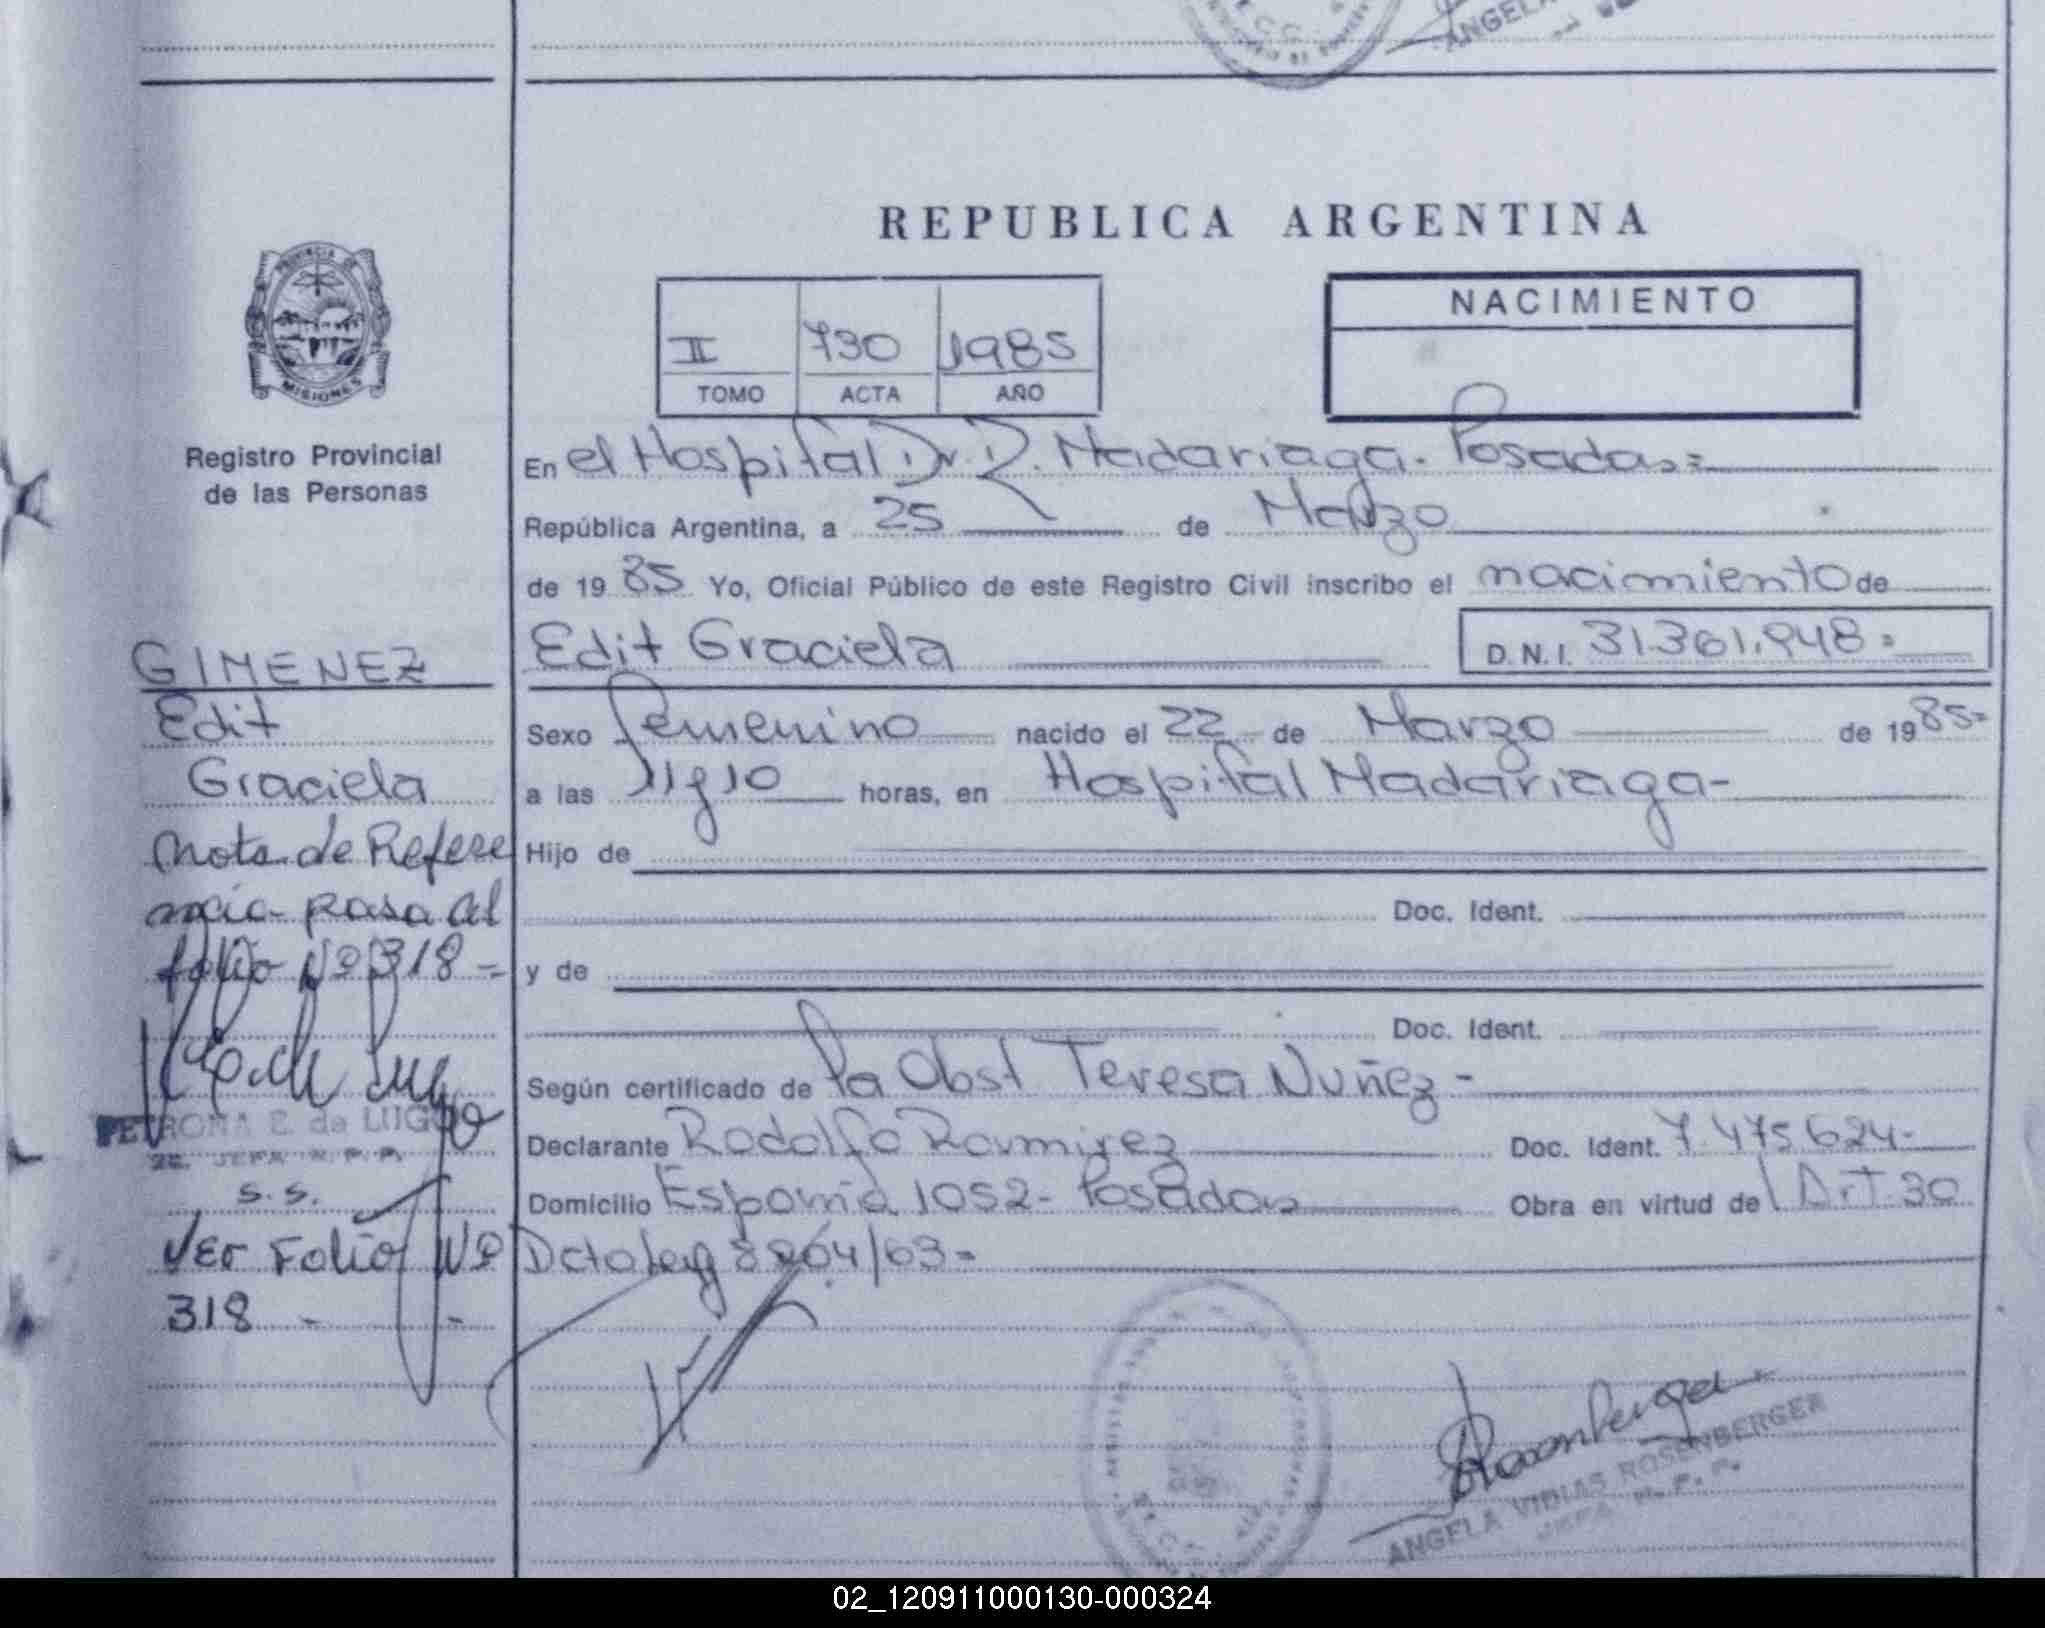 ANGELA
REPUBLICA ARGENTINA
PROVINCIA DE
MISIONES
Registro Provincial
de las Personas
II 730 1985
TOMO ACTA AÑO
NACIMIENTO
En el Hospital Dr. R. Madariaga. Posadas=
República Argentina, a 25 de Marzo
de 19 85 Yo, Oficial Público de este Registro Civil inscribo el nacimiento de
Edit Graciela D.N.I. 31.361.948=
Sexo femenino nacido el 22 de Marzo de 19 85=
a las 11 y 10 horas, en Hospital Madariaga-
Hijo de
Doc. Ident.
y de
Doc. Ident.
Según certificado de la Obst Teresa Nuñez-
Declarante Rodolfo Ramirez Doc. Ident. 7.475624-
Domicilio España 1052- Posadas Obra en virtud de Art 30
Dcto ley 8204/63=
GIMENEZ
Edit
Graciela
Nota de Refere
ncia pasa al
folio Nº 318=
PETRONA E. de LUGO
2E. JEFA R.P.P.
S. S.
Ver Folio Nº
318 - -
Rosenberger
ANGELA VIDIAS ROSENBERGER
JEFA R.P.P.
02_120911000130-000324